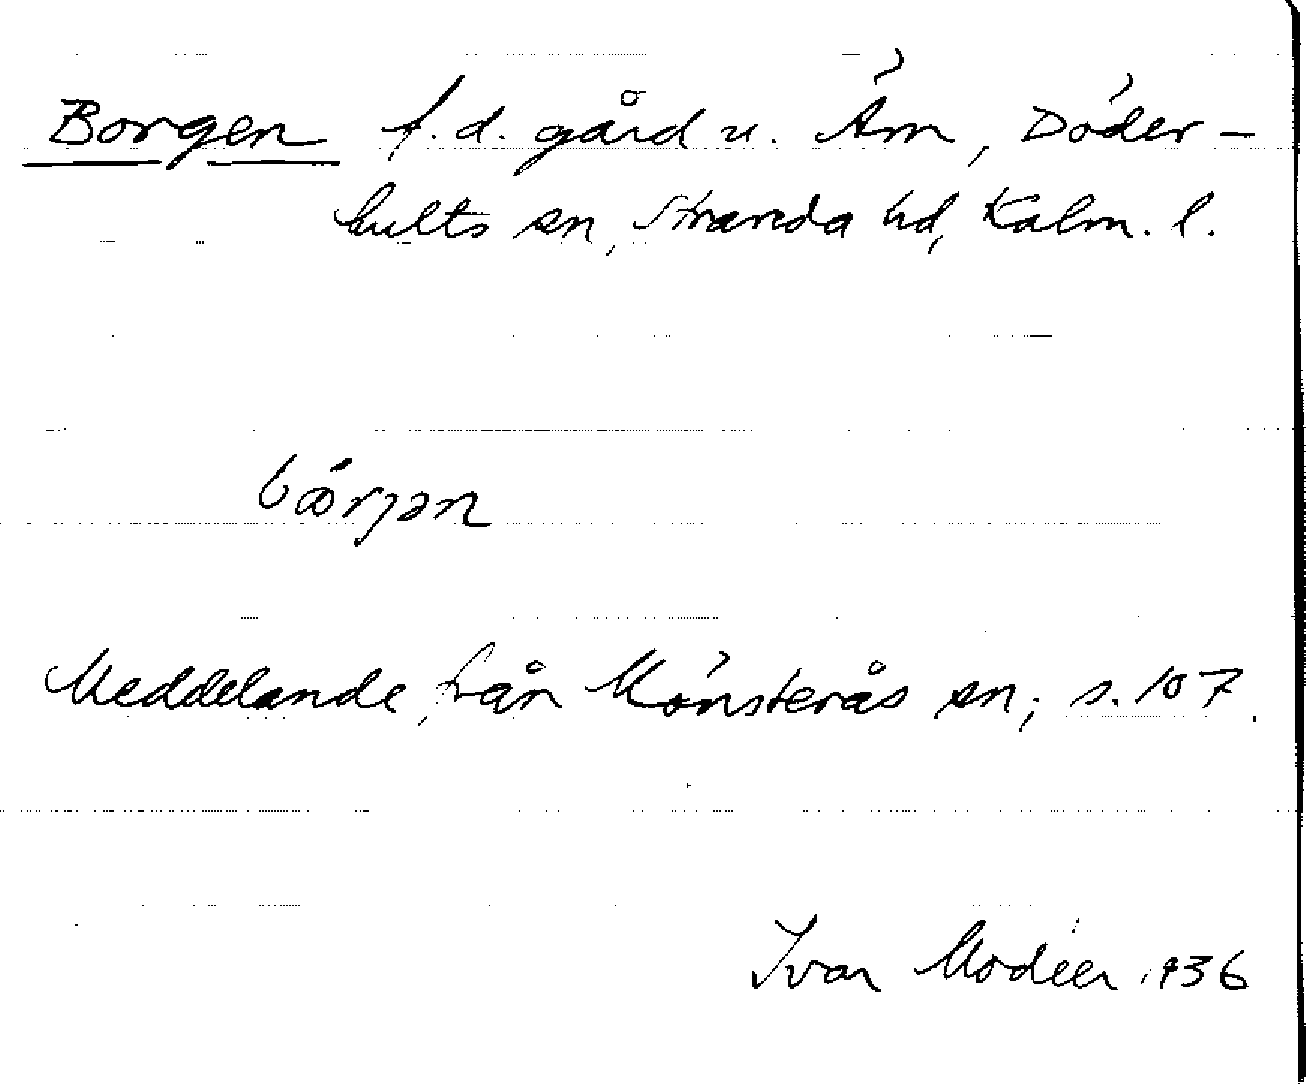 Borgen f.d. gård u. Äm, Döder-
hults sn, Stranda hd, Kalm. l.
bœ́rjən
Meddelande från Mönsterås sn; s. 107.
Ivar Modéer 1936